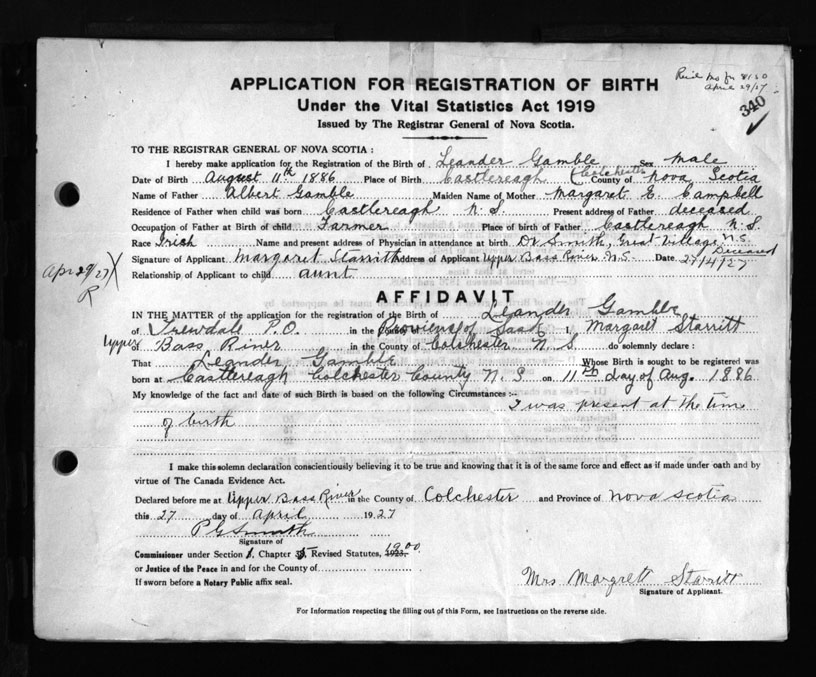 Recd
April 29/27
340
APPLICATION FOR REGISTRATION OF BIRTH
Under the Vital Statistics Act 1919
Issued by The Registrar General of Nova Scotia.
TO THE REGISTRAR GENERAL OF NOVA SCOTIA :
I hereby make application for the Registration of the Birth of Leander Gamble Sex Male
Date of Birth August 11th 1886 Place of Birth Castlereagh Colchester County of Nova Scotia
Name of Father Albert Gamble Maiden Name of Mother Margaret E. Campbell
Residence of Father when child was born Castlereagh N.S. Present address of Father deceased
Occupation of Father at Birth of child Farmer Place of birth of Father Castlereagh N.S.
Race Irish Name and present address of Physician in attendance at birth Dr Smith, Great Village N.S. Deceased
Signature of Applicant Margaret Starritt Address of Applicant Upper Bass River N.S Date 27/4/27
Apr 29/27 X
R
Relationship of Applicant to child aunt
AFFIDAVIT
IN THE MATTER of the application for the registration of the Birth of Leander Gamble
of Trewdale P.O. in the Province of Sask I, Margaret Starritt
of Upper Bass River in the County of Colchester N S do solemnly declare :
That Leander Gamble Whose Birth is sought to be registered was
born at Castlereagh Colchester County N.S on 11th Day of Aug. 1886
My knowledge of the fact and date of such Birth is based on the following Circumstances :—
I was present at the time
of birth
I make this solemn declaration conscientiously believing it to be true and knowing that it is of the same force and effect as if made under oath and by
virtue of The Canada Evidence Act.
Declared before me at Upper Bass River in the County of Colchester and Province of Nova Scotia
this 27 day of April 1927
Signature of
Commissioner under Section 1, Chapter 3 Revised Statutes, 1923. 1900
or Justice of the Peace in and for the County of
If sworn before a Notary Public affix seal.
Mrs Margrett Starritt
Signature of Applicant.
For Information respecting the filling out of this Form, see Instructions on the reverse side.